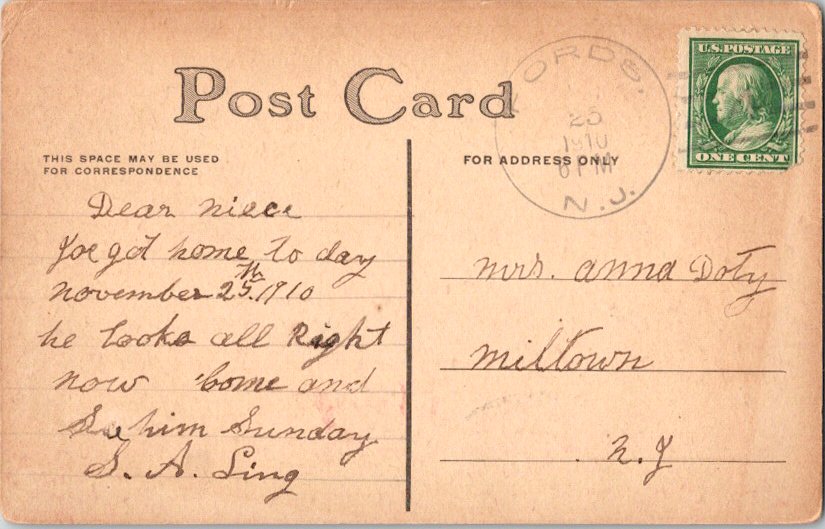 Post Card
THIS SPACE MAY BE USED
FOR CORRESPONDENCE
FOR ADDRESS ONLY
U.S. POSTAGE
ONE CENT
FORDS.
25
1910
6 PM
N.J.
Dear niece
Joe got home to day
november 25th. 1910
he looks all Right
now come and
See him Sunday
S. A. Ling
mrs. anna Doty
miltown
n. J